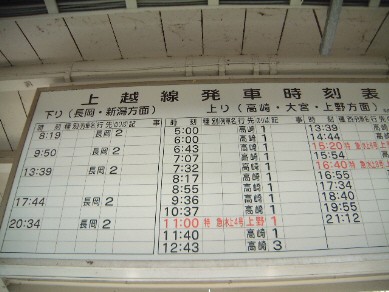 上越線発車時刻表
下り(長岡・新潟方面)
上り(高崎・大宮・上野方面)
時刻 種別 列車名 行先 のりば 記事
8:19 長岡 2
9:50 長岡 2
13:39 長岡 2
17:44 長岡 2
20:34 長岡 2
時刻 種別 列車名 行先 のりば 記事
5:00 高崎 1
6:00 高崎 1
6:43 高崎 1
7:07 高崎 1
7:32 高崎 1
8:17 高崎 1
8:55 高崎 1
9:36 高崎 1
10:37 高崎 1
11:00 特 上野 1
11:40 高崎 1
12:43 高崎 3
時刻 種別 列車名
13:39
14:44
15:20 特
15:54
16:40 特
16:55
17:34
18:40
19:55
21:12